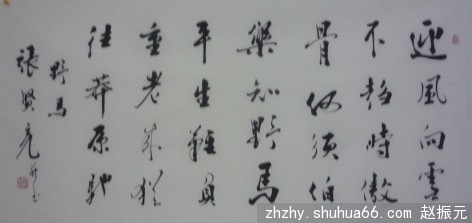 迎風向雪
不趍時傲
骨何須伯
樂知野馬
平生難負
重老来猶
往莽原馳
野馬
張賢亮
zhzhy.shuhua66.com 赵振元